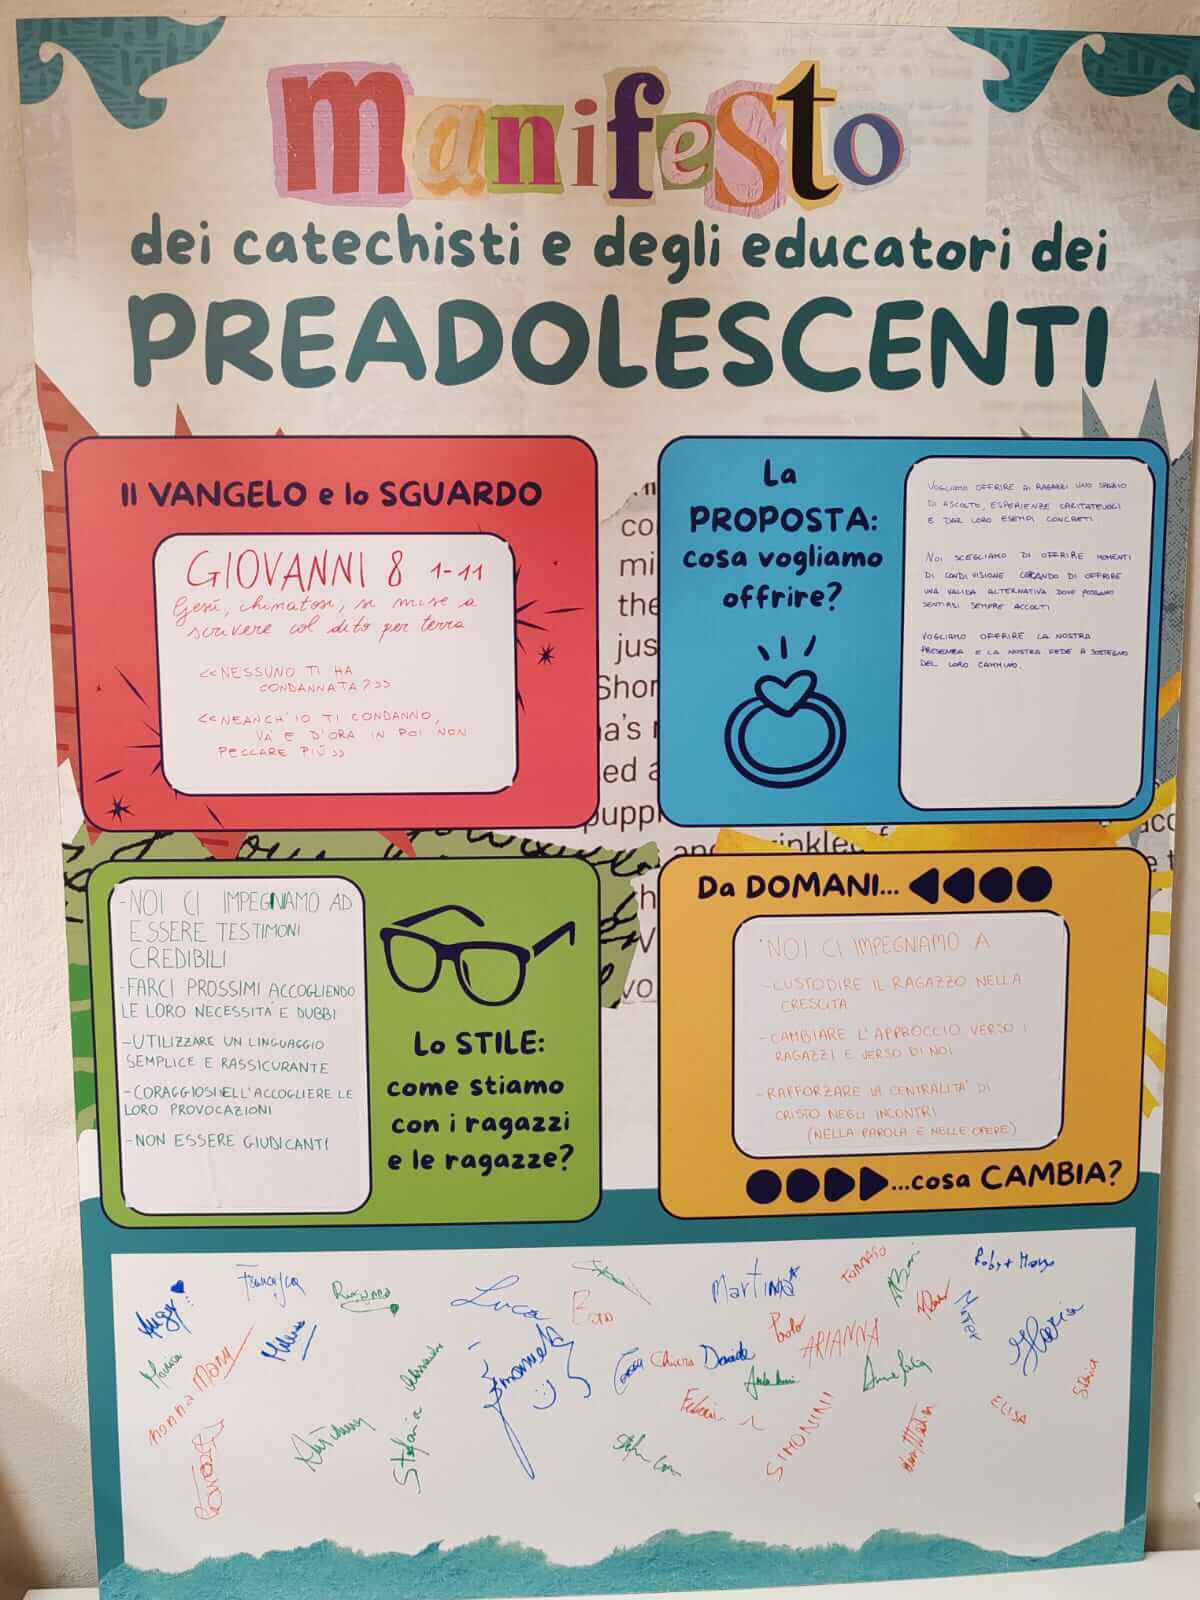 manifesto
dei catechisti e degli educatori dei
PREADOLESCENTI
Il VANGELO e lo SGUARDO
GIOVANNI 8 1-11
Gesù, chinatosi, si mise a
scrivere col dito per terra
<<NESSUNO TI HA
CONDANNATA?>>
<<NEANCH'IO TI CONDANNO,
VA' E D'ORA IN POI NON
PECCARE PIÙ>>
La
PROPOSTA:
cosa vogliamo
offrire?
VOGLIAMO OFFRIRE AI RAGAZZI UNO SPAZIO
DI ASCOLTO, ESPERIENZE CARITATEVOLI
E DAR LORO ESEMPI CONCRETI
NOI SCEGLIAMO DI OFFRIRE MOMENTI
DI CONDIVISIONE CERCANDO DI OFFRIRE
UNA VALIDA ALTERNATIVA DOVE POSSANO
SENTIRSI SEMPRE ACCOLTI.
VOGLIAMO OFFRIRE LA NOSTRA
PRESENZA E LA NOSTRA FEDE A SOSTEGNO
DEL LORO CAMMINO.
-NOI CI IMPEGNIAMO AD
ESSERE TESTIMONI
CREDIBILI
-FARCI PROSSIMI ACCOGLIENDO
LE LORO NECESSITA' E DUBBI
-UTILIZZARE UN LINGUAGGIO
SEMPLICE E RASSICURANTE
-CORAGGIOSI NELL'ACCOGLIERE LE
LORO PROVOCAZIONI
-NON ESSERE GIUDICANTI
Lo STILE:
come stiamo
con i ragazzi
e le ragazze?
Da DOMANI...
NOI CI IMPEGNIAMO A
-CUSTODIRE IL RAGAZZO NELLA
CRESCITA
-CAMBIARE L'APPROCCIO VERSO I
RAGAZZI E VERSO DI NOI
-RAFFORZARE LA CENTRALITA' DI
CRISTO NEGLI INCONTRI
(NELLA PAROLA E NELLE OPERE)
...cosa CAMBIA?
the
jus
Shor
ed a
puppi
Francesca
Luca
Martina
TOMMASO
Roby + Marzo
Giusy
Paolo
ARIANNA
Monica
Chiara
Davide
Ilaria
nonna Mary
Alessandra
Simonetta
Stefania
SIMONINI
ELISA
Silvia